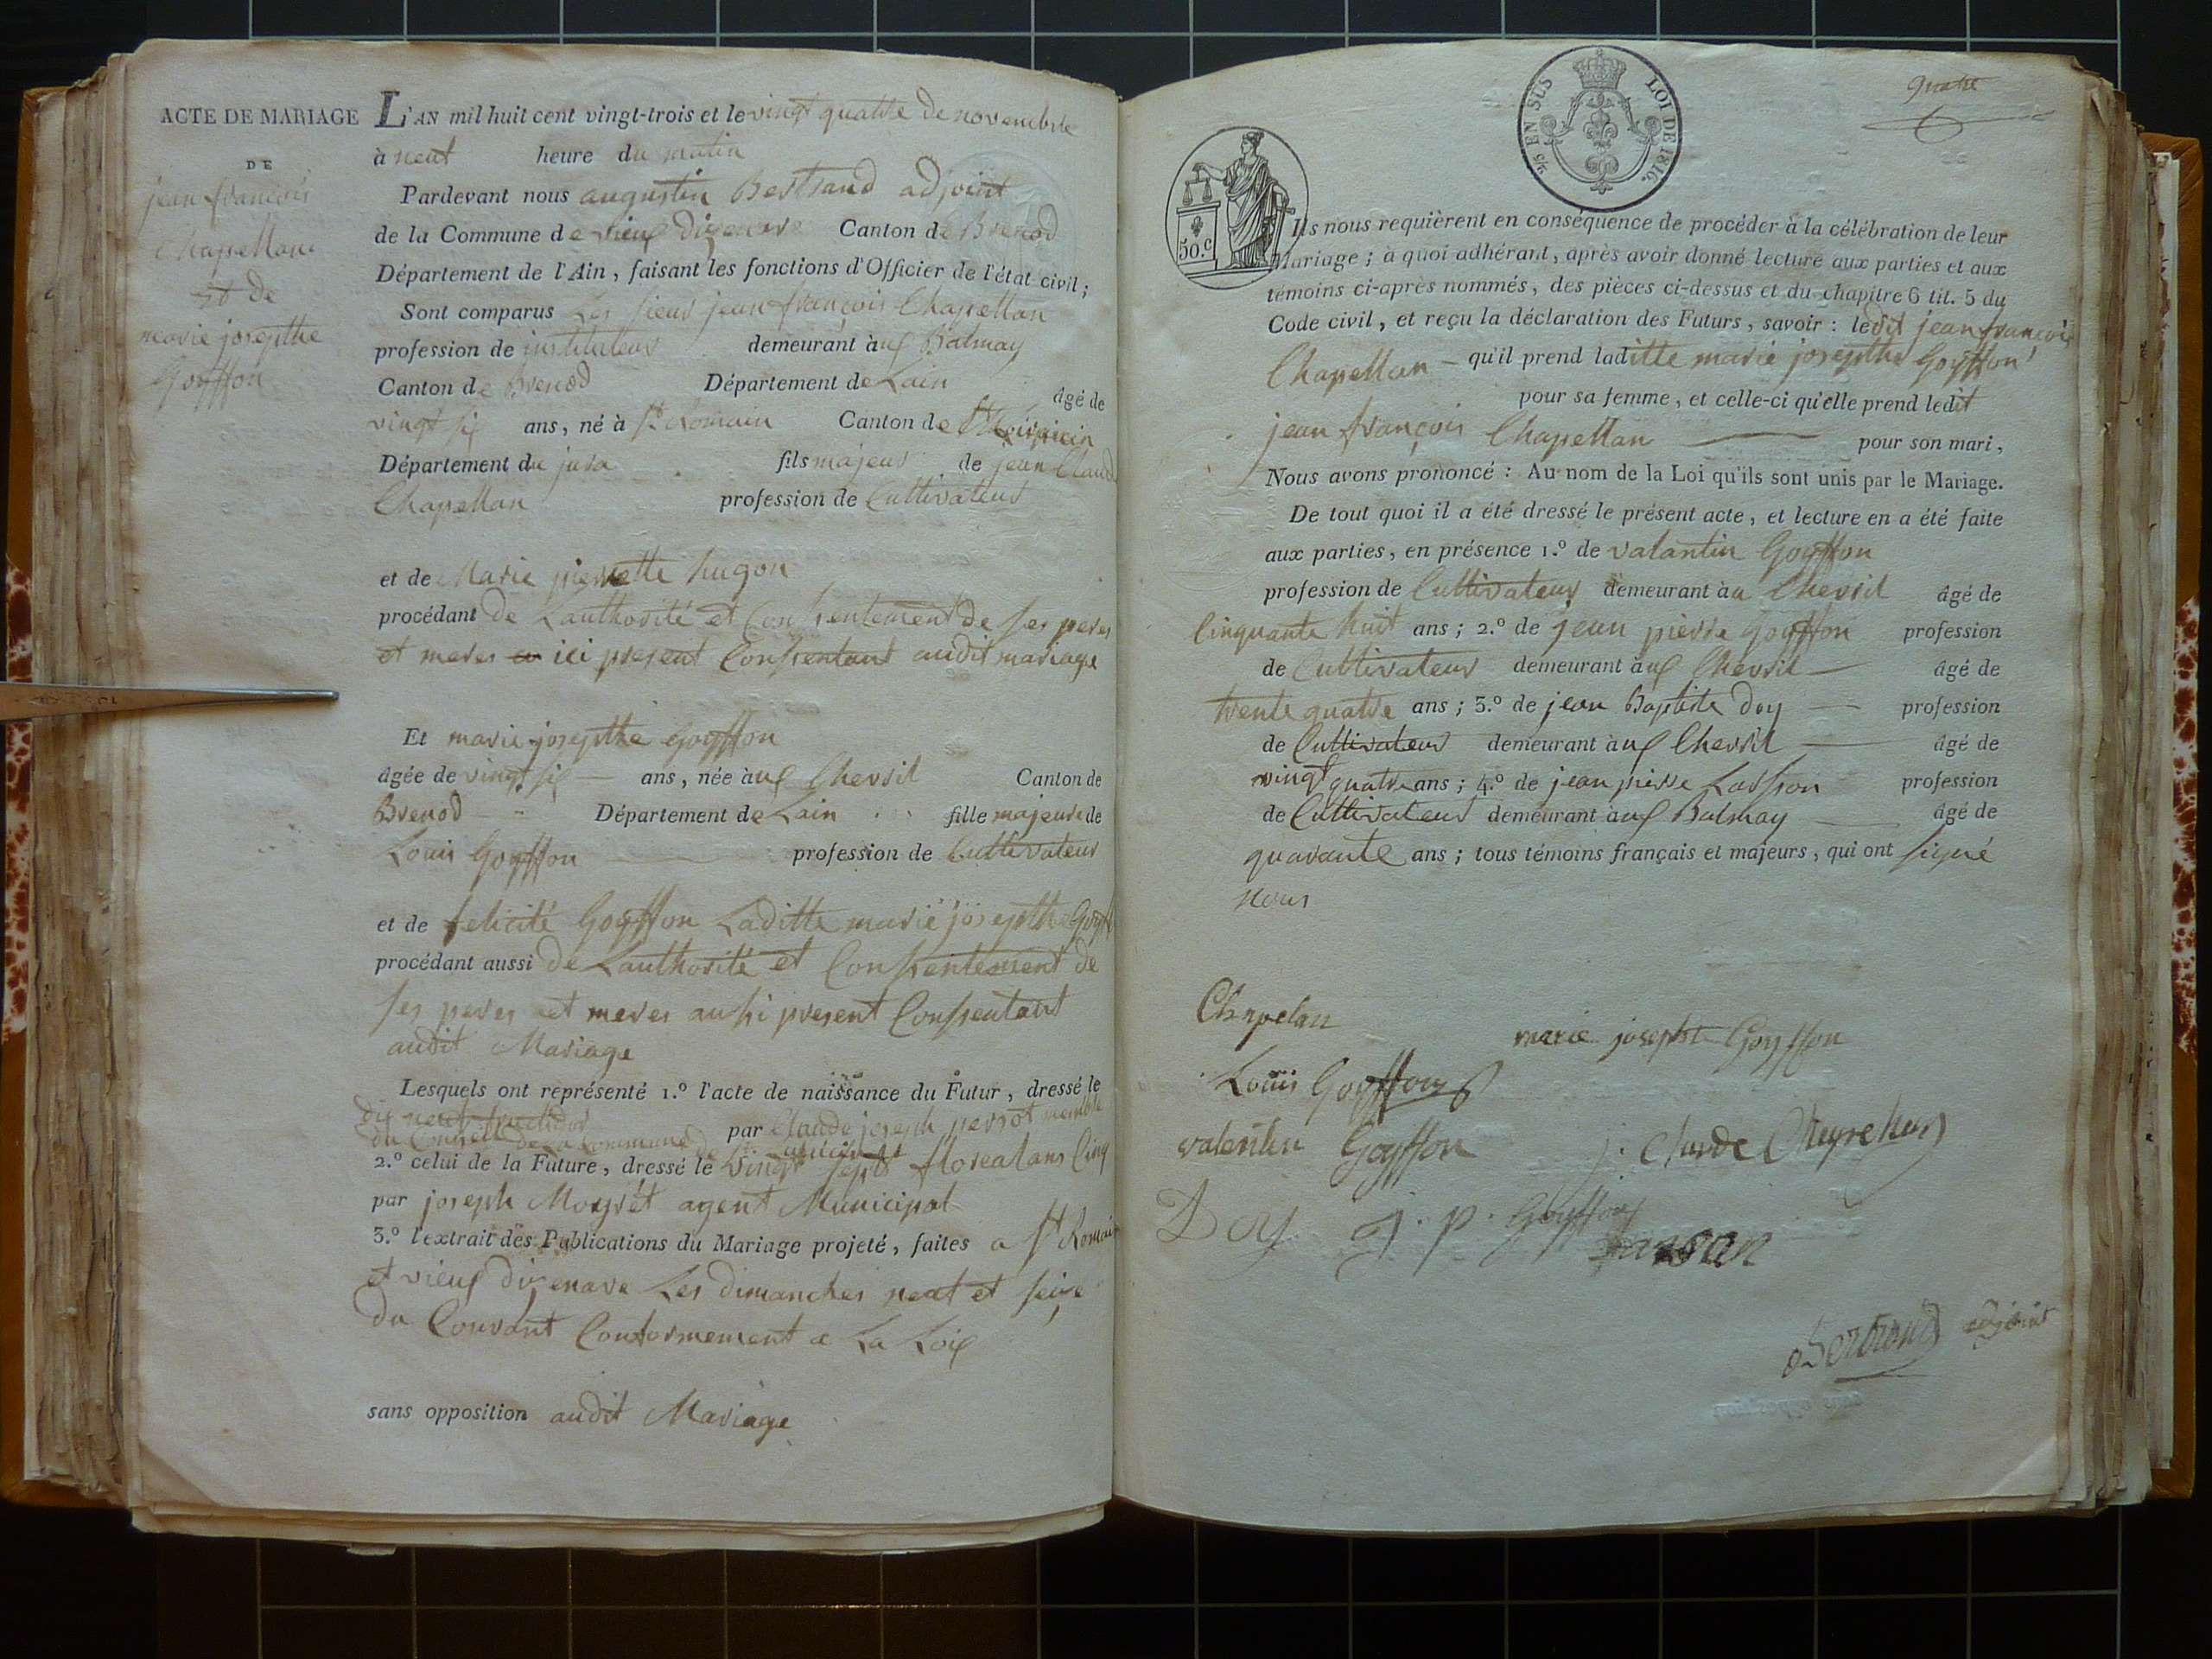 ACTE DE MARIAGE
DE
jean françois
Chapellan
et de
marie josepthe
Goyffon
L'AN mil huit cent vingt-trois et le vingt quatre de novembre
à neuf heure du matin
Pardevant nous augustin Bertrand adjoint
de la Commune de vieux dizenave Canton de Brenod
Département de l'Ain, faisant les fonctions d'Officier de l'état civil;
Sont comparus Les sieur jean françois Chapellan
profession de instituteur demeurant à aux Balmay
Canton de Brenod Département de Lain âgé de
vingt six ans, né à St Romain Canton de
Département du jura fils majeur de jean Claude
Chapellan profession de Cultivateur
et de Marie pierrette hugon
procédant de Lauthorité et Consentement de ses peres
et meres ici present Consentant audit mariage
Et marie josepthe Goyffon
âgée de vingt six ans, née à aux Chevril Canton de
Brenod Département de Lain fille majeure de
Louis Goyffon profession de Cultivateur
et de felicité Goyffon Laditte marie josepthe Goyff
procédant aussi de Lauthorité et Consentement de
ses peres et meres aussi present Consentant
audit Mariage
Lesquels ont représenté 1.º l'acte de naissance du Futur, dressé le
dix neuf fructidor par Claude joseph perrot membre
du Conseil de La Commune
2.º celui de la Future, dressé le vingt sept floreal ans Cinq
par joseph Moyrét agent Municipal
3.º l'extrait des Publications du Mariage projeté, faites a St Romain
et vieux dizenave Les dimanches neuf et seize
du Courant Conformement a La Loix
sans opposition audit Mariage
quatre
5/5 EN SUS LOI DE 1816.
50.c
Ils nous requièrent en conséquence de procéder à la célébration de leur
Mariage; à quoi adhérant, après avoir donné lecture aux parties et aux
témoins ci-après nommés, des pièces ci-dessus et du chapitre 6 tit. 5 du
Code civil, et reçu la déclaration des Futurs, savoir: ledit jean françois
Chapellan qu'il prend laditte marie josepthe Goyffon
pour sa femme, et celle-ci qu'elle prend ledit
jean françois Chapellan pour son mari,
Nous avons prononcé: Au nom de la Loi qu'ils sont unis par le Mariage.
De tout quoi il a été dressé le présent acte, et lecture en a été faite
aux parties, en présence 1.º de valantin Goyffon
profession de Cultivateur demeurant à au Chevril âgé de
Cinquante huit ans; 2.º de jean pierre Goyffon profession
de Cultivateur demeurant à aux Chevril âgé de
trente quatre ans; 3.º de jean Baptiste doy profession
de Cultivateur demeurant à aux Chevril âgé de
vingt quatre ans; 4.º de jean pierre profession
de Cultivateur demeurant à aux Balmay âgé de
quarante ans; tous témoins français et majeurs, qui ont signé
nous
Chapelan
marie josephte Goyffon
Louis Goyffon
valentin Goyffon
j. claude
Doy j. p. Goyffon
Bertrand adjoint